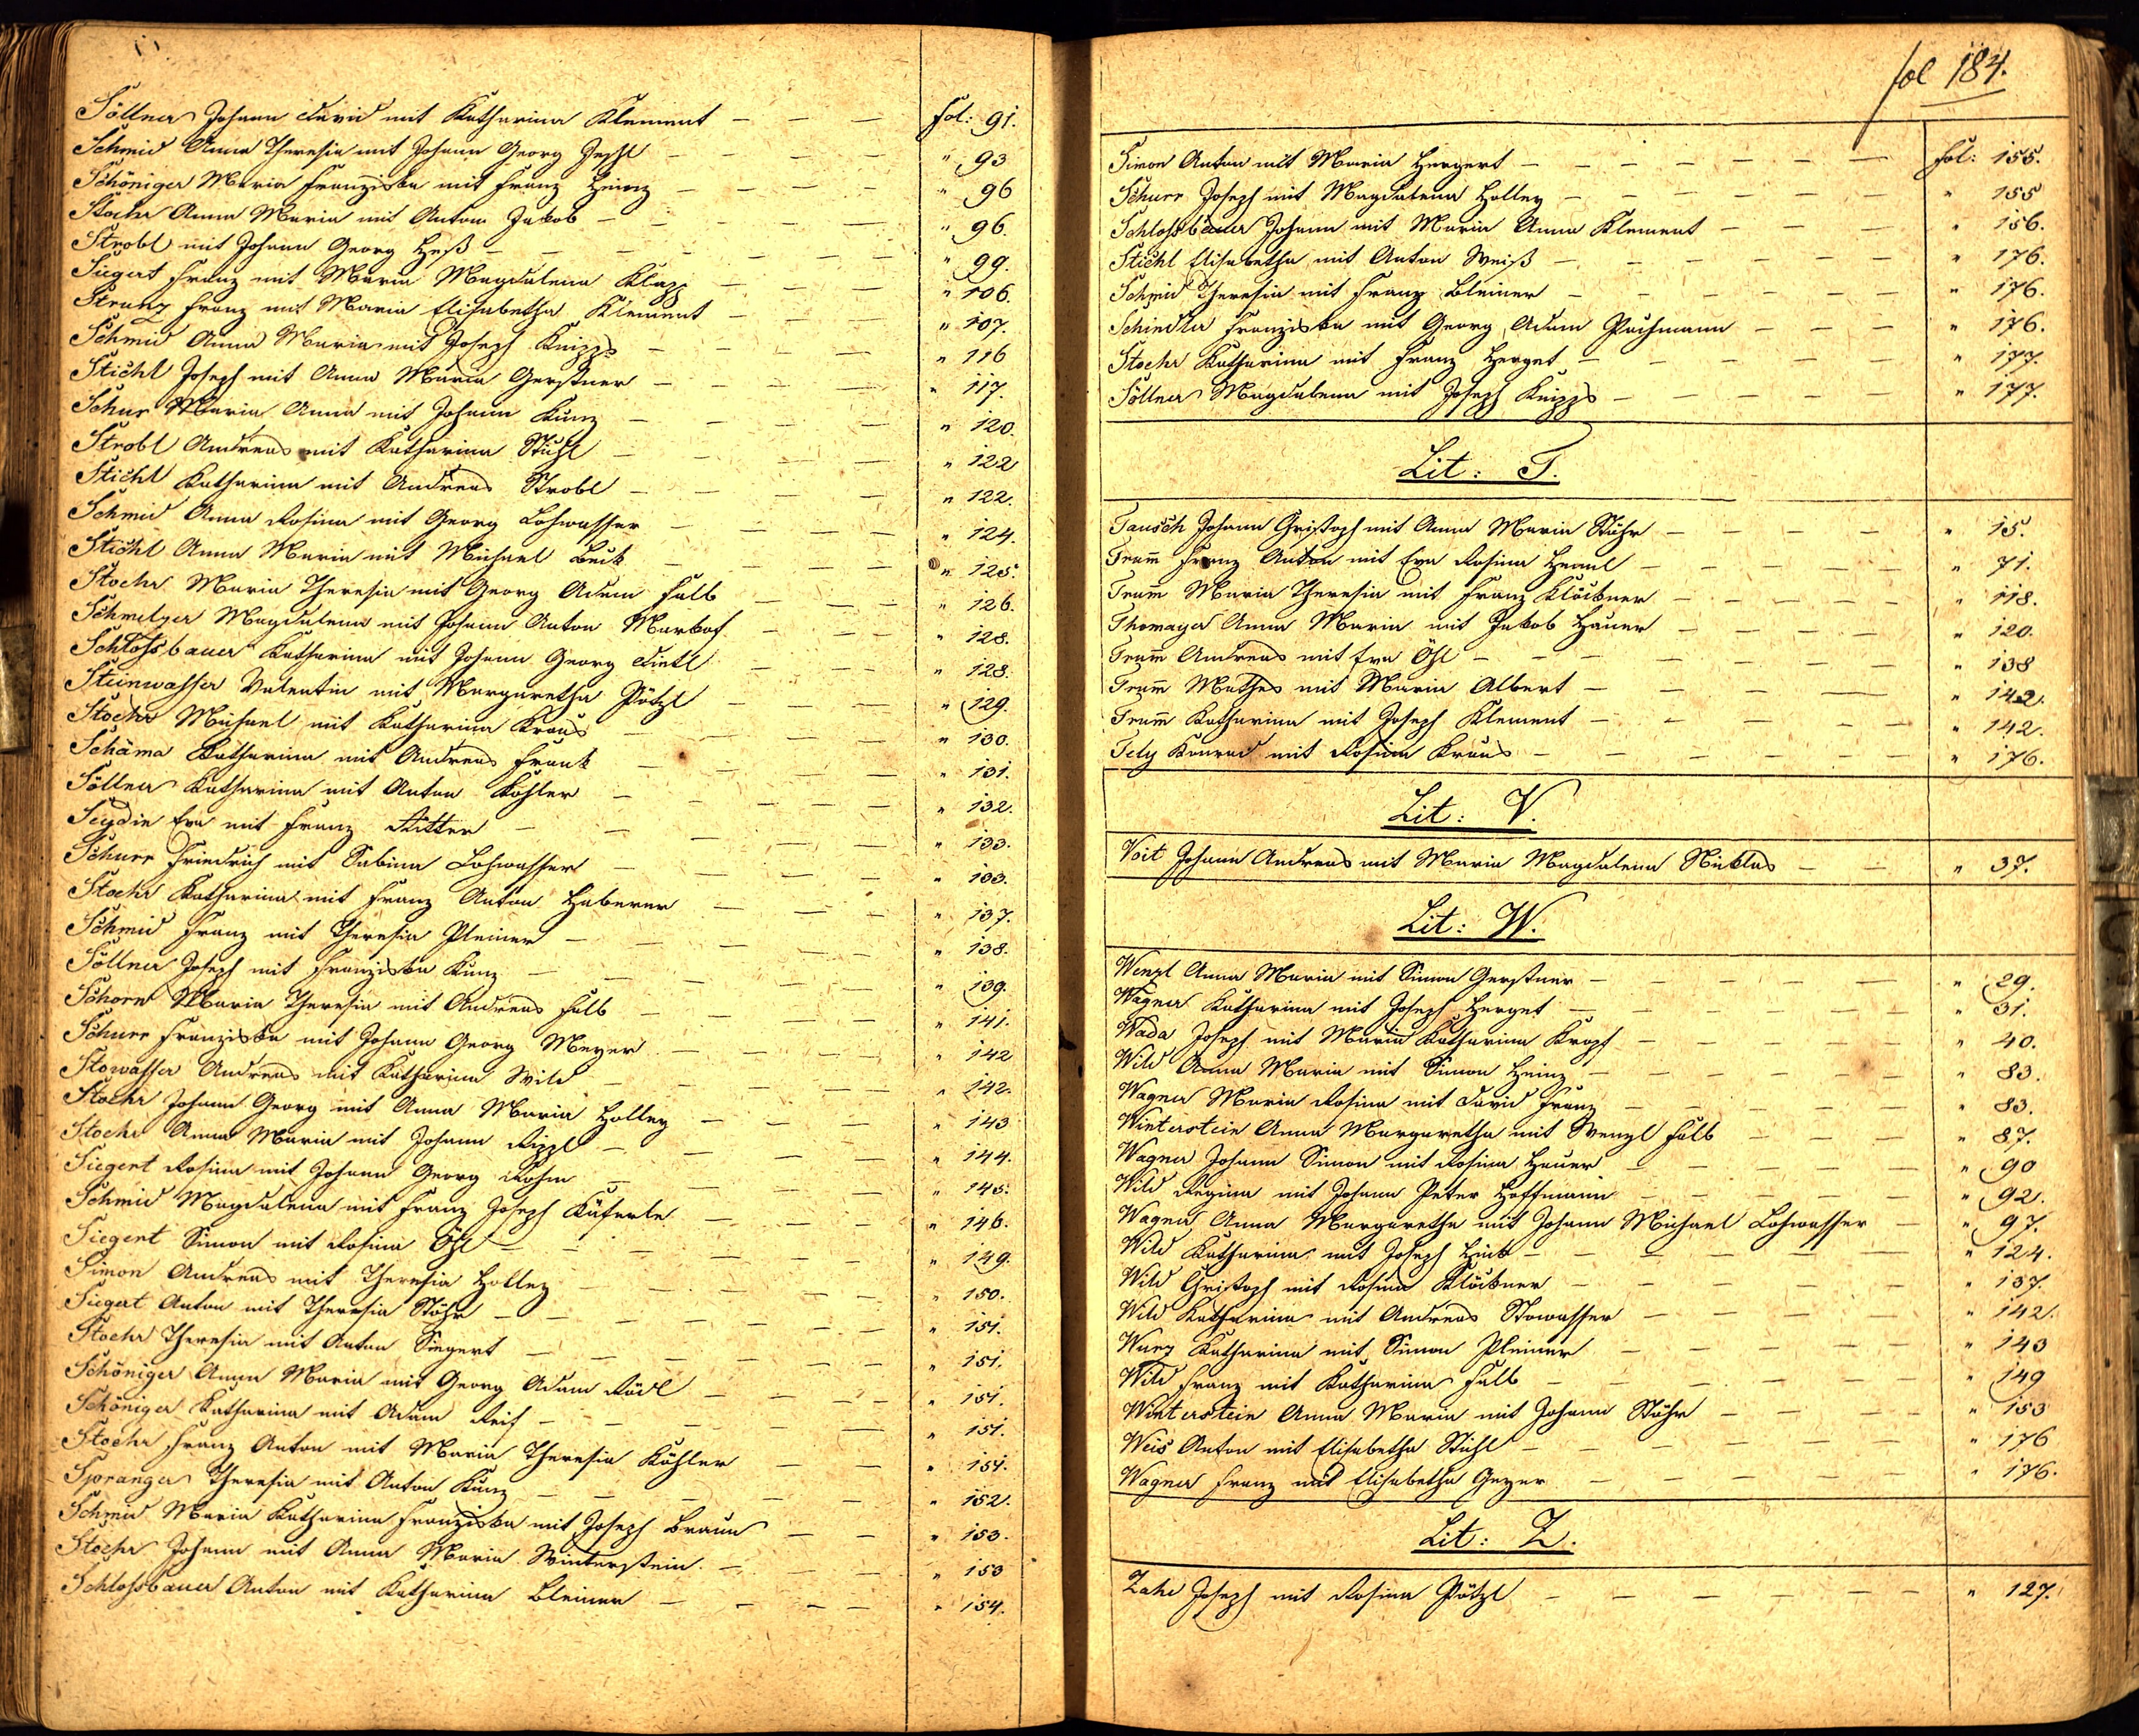 Söllner Johann David mit Katharina Klement — — — fol: 91.
Schmid Anna Theresia mit Johann Georg — — — " 93
Schöniger Maria Franziska mit Franz Heinz — — — — " 96
Stoehr Anna Maria mit Anton Jakob — — — — — " 96.
Strobl mit Johann Georg Heß — — — — — " 99.
Siegert Franz mit Maria Magdalena — — — — " 106.
Strunz Franz mit Maria Elisabetha Klement — — — " 107.
Schmid Anna Maria mit Joseph Knipps — — — — " 116
Stichl Joseph mit Anna Maria Gerstner — — — — " 117.
Schur Maria Anna mit Johann Kunz — — — — " 120.
Strobl Andreas mit Katharina Stichl — — — — " 122
Stichl Katharina mit Andreas Strobl — — — — " 122.
Schmid Anna Rosina mit Georg Lohwasser — — — — " 124.
Stichl Anna Maria mit Michael Beck — — — — " 125.
Stoehr Maria Theresia mit Georg Adam Falb — — — " 126.
Schmelzer Magdalena mit Johann Anton — — — " 128.
Schlossbauer Katharina mit Johann Georg Dietl — — — " 128.
Steinwasser Valentin mit Margaretha Pötzl — — — " 129.
Stoehr Michael mit Katharina Kraus — — — — " 130.
Schäma Katharina mit Andreas Frank — — — — " 131.
Söllner Katharina mit Anton Köhler — — — — " 132.
Seydin Eva mit Franz Ritter — — — — " 133.
Schurr Friedrich mit Sabina Lohwasser — — — — " 133.
Stoehr Katharina mit Franz Anton Haberer — — — " 137.
Schmid Franz mit Theresia Pleiner — — — — " 138.
Söllner Joseph mit Franziska Kunz — — — — " 139.
Schorn Maria Theresia mit Andreas Falb — — — — " 141.
Schurr Franziska mit Johann Georg Meyer — — — — " 142
Stowasser Andreas mit Katharina Wild — — — — " 142.
Stoehr Johann Georg mit Anna Maria Holley — — — " 143
Stoehr Anna Maria mit Johann Rippl — — — — " 144.
Siegert Rosina mit Johann Georg — — — — " 145.
Schmid Magdalena mit Franz Joseph Käferle — — — " 146.
Siegert Simon mit Rosina Öhl — — — — " 149.
Simon Andreas mit Theresia Holley — — — — " 150.
Siegert Anton mit Theresia Stöhr — — — — " 151.
Stoehr Theresia mit Anton Siegert — — — — " 151.
Schöniger Anna Maria mit Georg Adam Rödl — — — " 151.
Schöniger Katharina mit Adam Reif — — — — " 151.
Stoehr Franz Anton mit Maria Theresia Köhler — — " 151.
Spranger Theresia mit Anton Kunz — — — — " 152.
Schmid Maria Katharina Franziska mit Joseph Braun — — " 153.
Stoehr Johann mit Anna Maria Winterstein — — — " 153
Schlossbauer Anton mit Katharina Bleiner — — — — " 154.
fol 184.
Simon Anton mit Maria Hergert — — — — — fol: 155.
Schurr Joseph mit Magdalena Holley — — — — " 155
Schlossbauer Johann mit Maria Anna Klement — — — " 156.
Stichl Elisabetha mit Anton Weiß — — — — " 176.
Schmid Theresia mit Franz Bleiner — — — — " 176.
Schindler Franziska mit Georg Adam Puchmann — — — " 176.
Stoehr Katharina mit Franz Herget — — — — " 177.
Söllner Magdalena mit Joseph Knipps — — — — " 177.
Lit: T.
Tausch Johann Christoph mit Anna Maria Stöhr — — — — " 15.
Tram̄ Franz Anton mit Eva Rosina — — — — " 71.
Tram̄ Maria Theresia mit Franz Klöckner — — — — " 118.
Thomayer Anna Maria mit Jakob Hauer — — — — " 120.
Tram̄ Andreas mit Eva Öhl — — — — " 138
Tram̄ Mathes mit Maria Albert — — — — " 142.
Tram̄ Katharina mit Joseph Klement — — — — " 142.
Tely Konrad mit Rosina Kraus — — — — " 176.
Lit: V.
Voit Johann Andreas mit Maria Magdalena Nicklas — — " 37.
Lit: W.
Wenzl Anna Maria mit Simon Gerstner — — — — " 29.
Wagner Katharina mit Joseph Herget — — — — " 31.
Wada Joseph mit Maria Katharina Kropf — — — — " 40.
Wild Anna Maria mit Simon Heinz — — — — " 83.
Wagner Maria Rosina mit David Franz — — — — " 83.
Winterstein Anna Margaretha mit Wenzl Falb — — — " 87.
Wagner Johann Simon mit Rosina Hauer — — — — " 90
Wild Regina mit Johann Peter Hoffmann — — — — " 92.
Wagner Anna Margaretha mit Johann Michael Lohwasser — " 97.
Wild Katharina mit Joseph — — — — " 124.
Wild Christoph mit Rosina Klöckner — — — — " 137.
Wild Katharina mit Andreas Stowasser — — — — " 142.
Wurz Katharina mit Simon Pleiner — — — — " 143
Wild Franz mit Katharina Falb — — — — " 149
Winterstein Anna Maria mit Johann Stöhr — — — — " 153
Weis Anton mit Elisabetha Stichl — — — — " 176
Wagner Franz mit Elisabetha Geyer — — — — " 176.
Lit: Z.
Zahe Joseph mit Rosina Pötzl — — — — " 127.